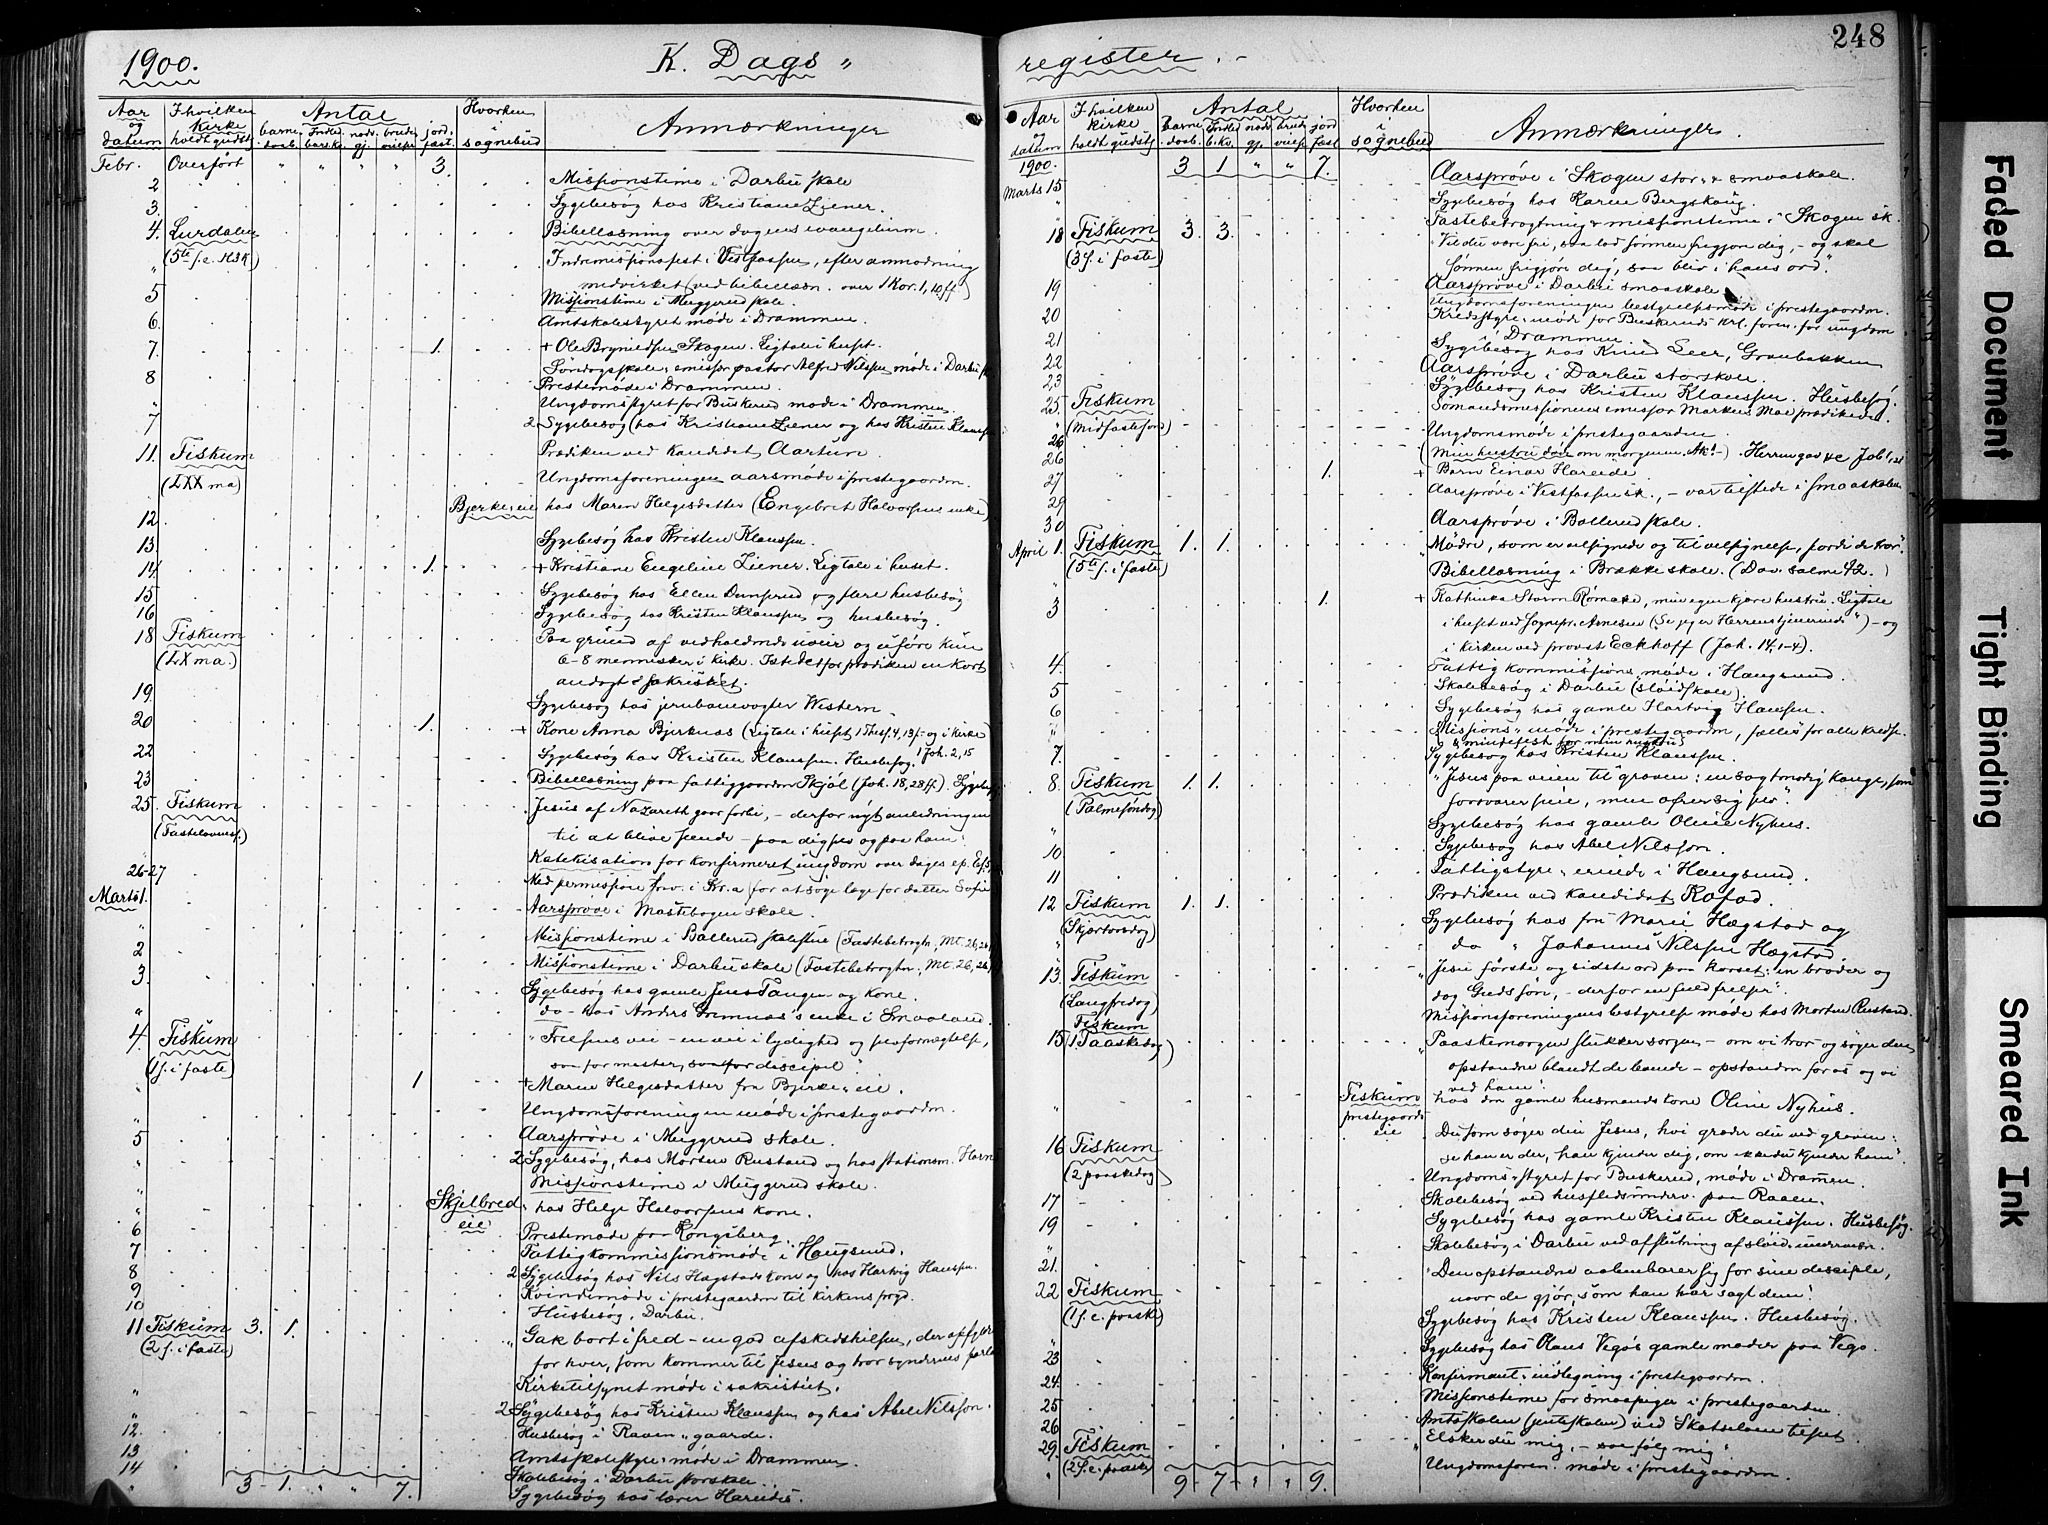 1900. K. Dags „
Aar og datum
I hvilken Kirke holdt gudstj.
Antal
barne daab.
Indled barselk.
nødv. gj.
brude vielser
jord. fæst.
Hvorhen i sognebud
Anmærkninger
Febr. Overført „ „ „ „ 3.
2 Missionstime i Darbu skole
3. Sygebesøg hos Kristiane Ziener.
4. Lurdalen Bibellæsning over dagens evangelium.
(5te s. e. H3K) Indremissionsfest i Vestfossen, efter anmodning
medvirket (ved bibellæsn. over 1 Kor. 1, 10 ff)
5 Missionstime i Muggerud skole.
6. Amtskolestyret møde i Drammen.
7. 1. + Ole Brynildsen Skogen. Ligtale i huset.
8 Søndagsskole, emissær pastor Alfred Nilssen møde i Darbu
Prestemøde i Drammen.
„ Ungdomsstyret for Buskerud møde i Drammen
7 2 Sygebesøg (hos Kristiane Ziener og hos Kristen Klaussen
11. Fiskum Prædiken ved kandidat Aartun.
(LXX ma) Ungdomsforeningen aarsmøde i prestegaarden.
12 Bjerke-eie hos Maren Helgesdatter (Engebret Halvorsens enke)
13. Sygebesøg hos Kristen Klaussen.
14. 1. + Kristiane Engeline Ziener. Ligtale i huset.
15 Sygebesøg hos Ellen Dunserud og flere husbesøg
16 Sygebesøg hos Kristen Klaussen og husbesøg.
18 Fiskum Paa grund af vedholdende uveir og uføre kun
(LX ma.) 6-8 mennesker i kirke. Istedetfor prædiken en kort
andagt i sakristiet.
19. Sygebesøg hos jernbanevogter Western
20 1. + Kone Anna Bjerknæs (Ligtale i huset 1 Thes. 4, 13 f- og i kirke
1 Joh. 2, 15
22 Sygebesøg hos Kristen Klaussen. Husbesøg.
23 Bibellæsning paa fattiggaarden Skjøl (Joh. 18, 28 ff).
25 Fiskum Jesus af Nazareth gaar forbi, - derfor nyt anledningen
(Fastelavnss.) til at blive seende - paa dig sjæl og paa ham.
Katekisation for konfirmeret ungdom over dages ep. Ef. 5
26-27 Med permission frav. i Kr.a for at søge læge for datter Sofie
Marts 1. Aarsprøve i Mastebogen skole.
„ Missionstime i Bollerud skolestue (Fastebetragtn, Mt. 26, 26
2 Missionstime i Darbu skole (Fastebetragtn, Mt. 26, 26
3. Sygebesøg hos gamle Jens Tangen og kone.
„ do - hos Anders Gremnæs's enke i Smaaland.
4. Fiskum „Frelsens vei - en vei i lydighed og selvfornægtelse,
(1 s. i faste) som for mester, saa for discipel."
„ 1 + Maren Helgesdatter fra Bjerke-eie.
„ Ungdomsforeningen møde i prestegaarden.
5 Aarsprøve i Muggerud skole.
„ 2 Sygebesøg, hos Morten Rustand og hos stationsm. Horn
„ Missionstime i Muggerud skole.
„ Skjelbred eie hos Helge Halvorsens kone.
6 Prestemøde paa Kongsberg.
7 Fattigkommissionsmøde i Haugsund.
8 2 Sygebesøg hos Nils Hægstads kone og hos Hartvig Hansen.
9 Kvindemøde i prestegaarden til kirkens pryd.
10 Husbesøg, Darbu.
11 Fiskum 3. 1. „Gak bort i fred - en god afskedshilsen, der opfyldes
(2 s. i faste) for hver, som kommer til Jesus og tror syndernes forla
„ Kirketilsynet møde i sakristiet.
„ 2 Sygebesøg hos Kristen Klaussen og hos Abel Nilsson.
12. Husbesøg i Raaen-gaarde.
13 Amtsskolestyre, møde i Drammen.
14 Skolebesøg i Darbu storskole.
„ Sygebesøg hos lærer Hareide.
3 - 1. „ „ 7.
register. -
248
Aar og datum
I hvilken kirke holdt gudstj.
Antal
barne daab.
Indled b.kv.
nødv gj.
brude vielse
jord fæst
Hvorhen i sognebud
Anmærkninger.
1900. 3 1 „ „ 7.
Marts 15 Aarsprøve i Skogen stor- & smaaskole.
„ Sygebesøg hos Karen Bergskaug.
Fastebetragtning & missionstime i Skogen sk.
18 Fiskum 3. 3. „Vil du være fri, saa lad sønnen frigjøre dig, - og skal
(3 s. i faste) sønnen frigjøre dig, saa bliv i hans ord".
19 Aarsprøve i Darbu smaaskole.
20 Ungdomsforeningen bestyrelsesmøde i prestegaarden.
21 Kredsstyre-møde for Buskeruds krl. foren. for ungdom
i Drammen.
22 Sygebesøg hos Knud Leer, Grønbakken
23 Aarsprøve i Darbu storskole.
25. Fiskum Sygebesøg hos Kristen Klaussen. Husbesøg.
„ (Midfastesønd) Sømandsmissionens emissær Markus Moe prædikede.
26 Ungdomsmøde i prestegaarden.
26 (Min hustru døde om morgenen. Ak! -). Herren gav etc Job 1, 21
27 1. + Barn Einar Hareide.
29 Aarsprøve i Vestfossen sk., - var tilstede i smaaskolen
30 Aarsprøve i Bollerud skole.
April 1. Fiskum 1. 1. „Mødre, som er velsignede og til velsignelse, fordi de tror".
(5te s. i faste) Bibellæsning i Brække skole. (Dav. salme 42.)
3 1. + Kathinka Storm Rømcke, min egen kjære hustru. Ligtale
i huset ved sognepr. Arnesen („Se jeg er Herrens tjenerinde") - og
i kirken ved provst Eckhoff (Joh. 14, 1-4).
4. Fattigkommissions møde i Haugsund.
5 Skolebesøg i Darbu (sløidskole).
6 Sygebesøg hos gamle Hartvig Hansen.
„ Missions-møde i prestegaarden, fælles for alle kredse.
& mindefest for min hustru)
7 Sygebesøg hos Kristen Klaussen.
8 Fiskum 1. 1. „Jesus paa veien til graven: en sagtmodig konge, som
(Palmesøndag) forsvarer seie, men ofrer sig selv".
„ Sygebesøg hos gamle Oline Nyhus.
10. Sygebesøg hos Abel Nilsson.
11 Fattigstyre-ærinde i Haugsund.
12 Fiskum 1. 1. Prædiken ved kandidat Kofod.
(Skjærtorsdag) Sygebesøg hos fru Marie Hægstad og
„ do „ Johannes Nilssen Hægstad.
13. Fiskum „Jesu første og sidste ord paa korset: en broder og
(Langfredag) dog Guds søn, - derfor en fuld frelser".
Missionsforeningens bestyrelse møde hos Morten Rustand.
15 Fiskum (1. Paaskedag) „Paaskemorgen slukker sorgen - om vi tror og søger den
opstandne blandt de levende - opstanden for os og vi
ved ham".
„ Fiskum prestegaards eie hos den gamle husmandskone Oline Nyhus.
16 Fiskum „Du som søger din Jesus, hvi græder du ved graven:
(2 paaskedag) se han er der, han kjender dig, om ikke du kjender ham".
17 Ungdoms-styret for Buskerud, møde i Drammen.
19 Skolebesøg ved husflidsunderv. paa Raaen.
„ Sygebesøg hos gamle Kristen Klaussen. Husbesøg.
21. Skolebesøg i Darbu ved afslutning af sløid-undervisn.
22 Fiskum „Den opstandne aabenbarer sig for sine disciple,
(1 s. e. paaske) naar de gjør, som han har sagt dem".
„ Sygebesøg hos Kristen Klaussen. Husbesøg.
23 Sygebesøg hos Olaus Vego's gamle moder paa Vego.
24. Konfirmant-indlegning i prestegaarden.
25 Missionstime for smaapiger i prestegaarden.
26 Amtsskolen (jenteskolen) ved Skotselven tilset.
29. Fiskum „Elsker du mig, - saa følg mig"
„ (2 s. e. paaske) Ungdomsforen. møde i prestegaarden.
9 - 7 - „ „ 9.
Faded Document
Tight Binding
Smeared Ink